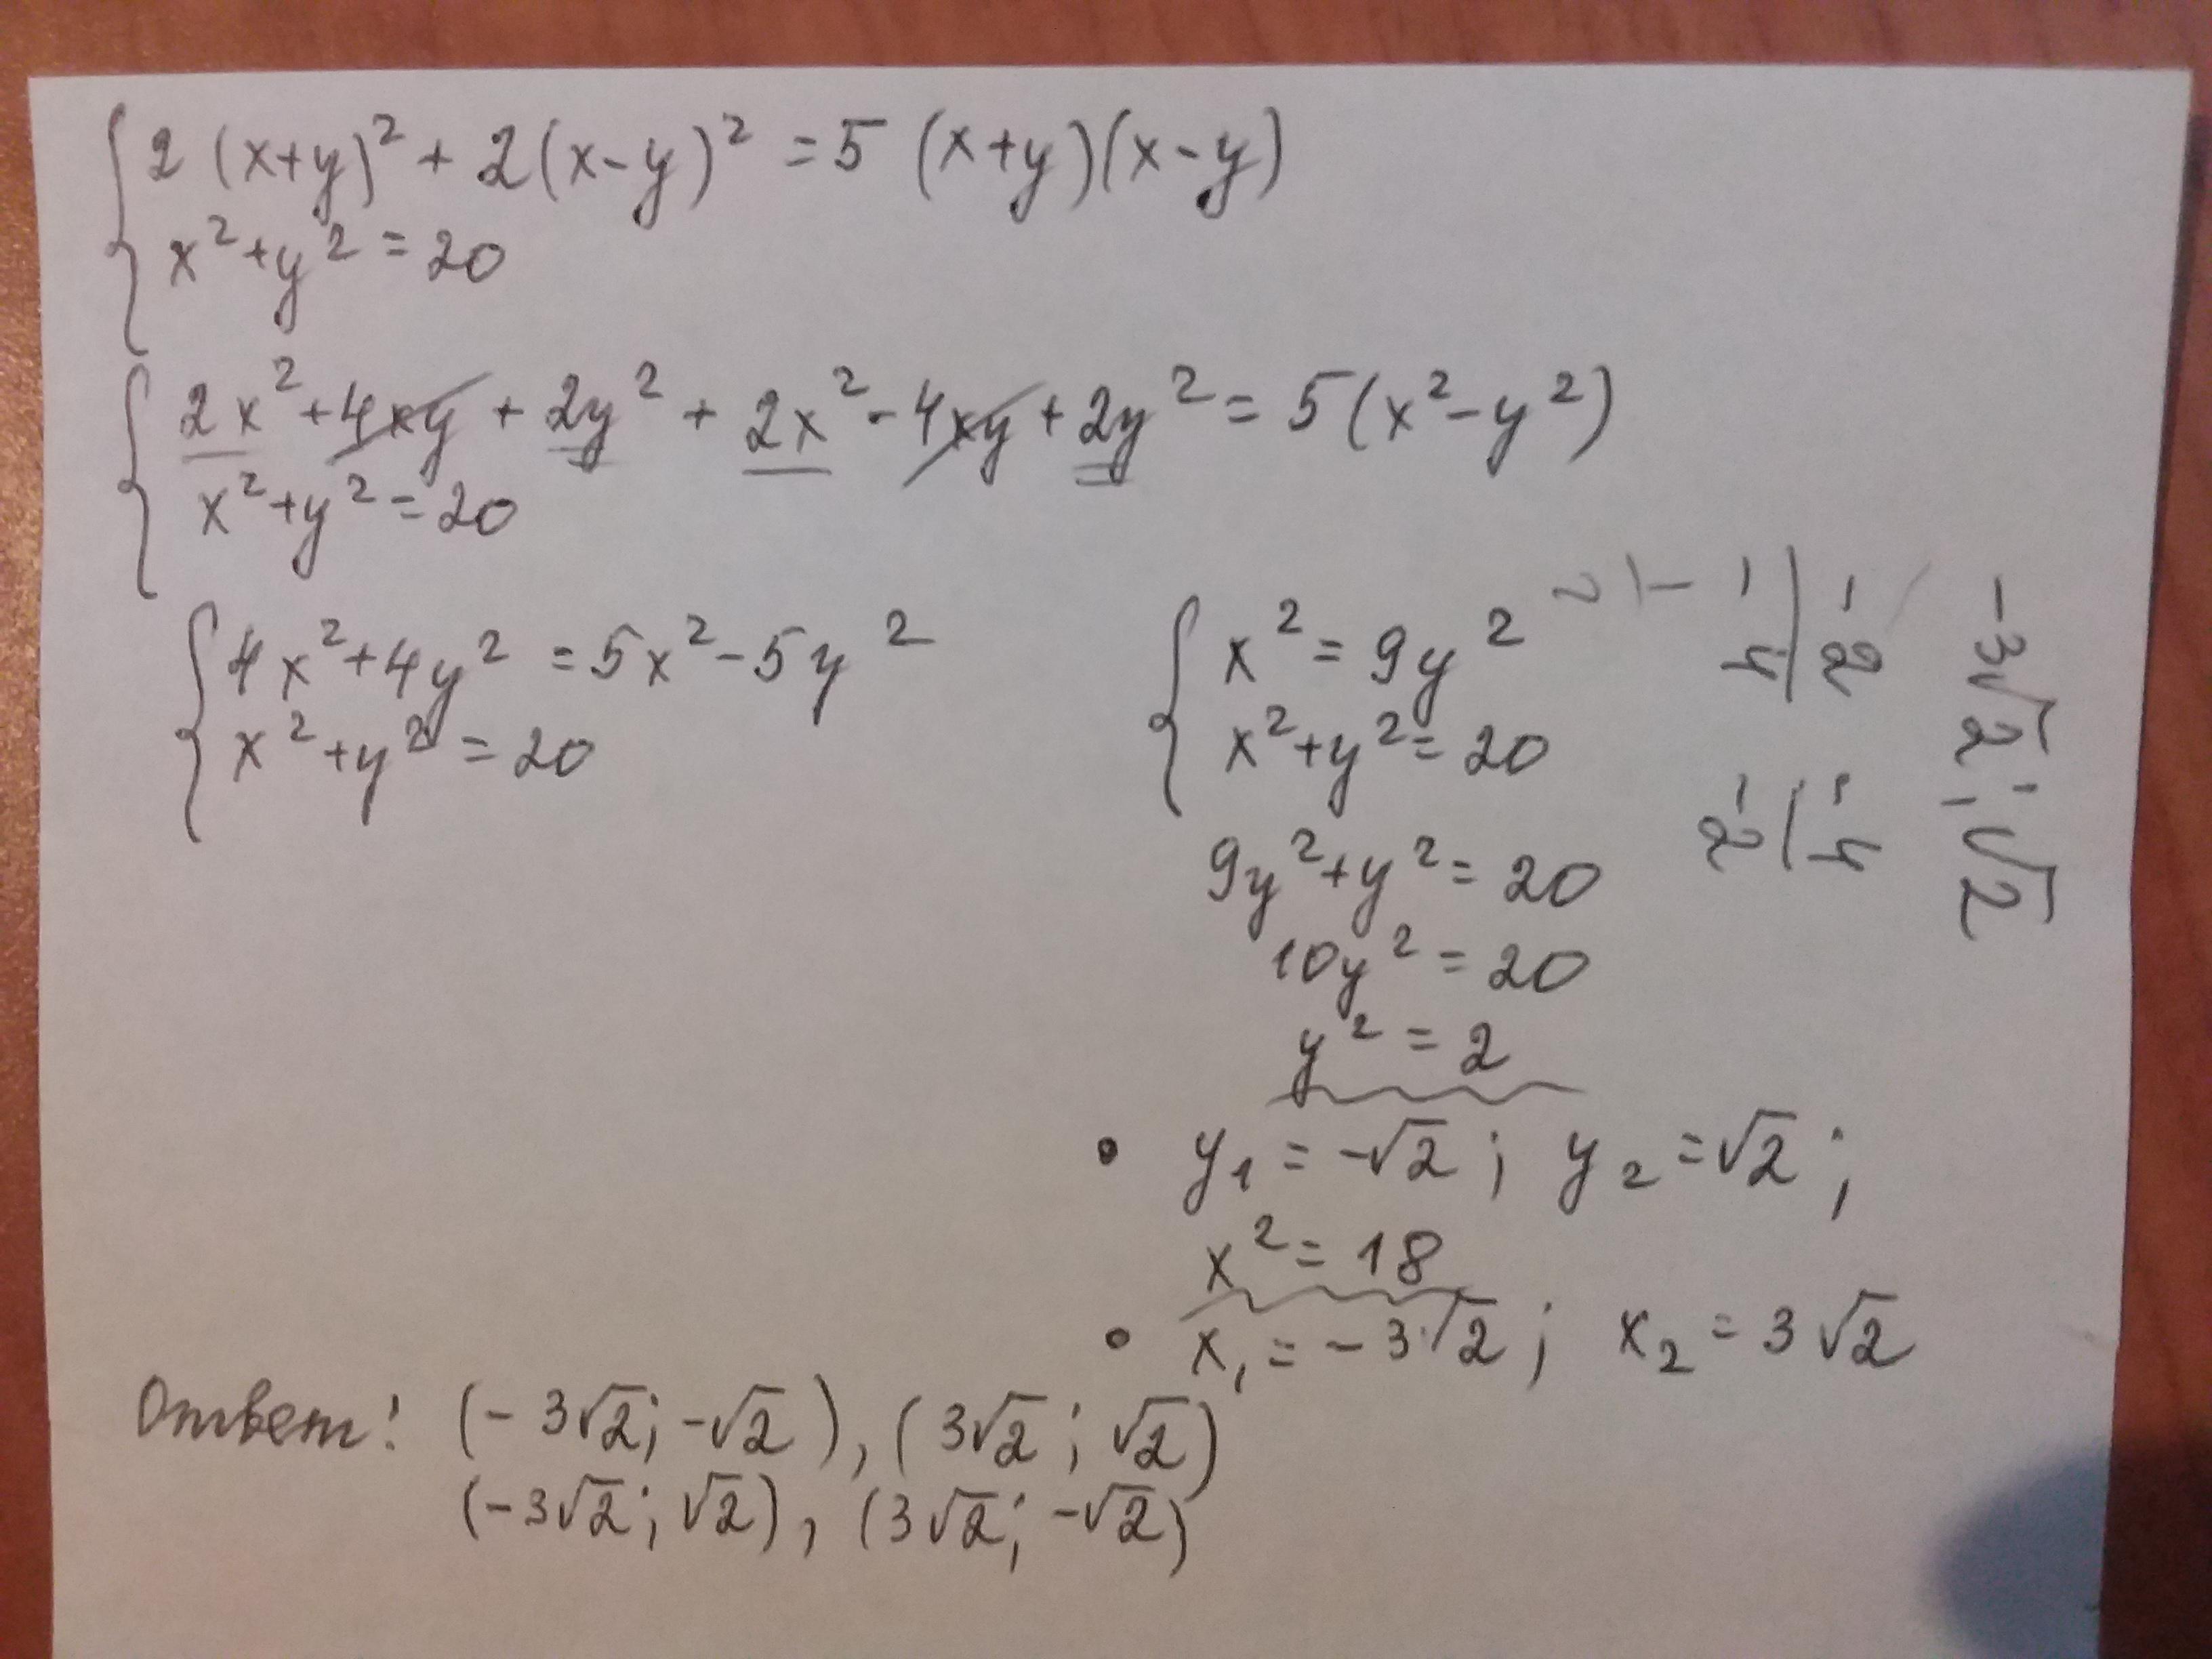 2 (x+y)² + 2(x-y)² = 5 (x+y)(x-y)
x²+y² = 20
2x²+4xy + 2y² + 2x² - 4xy + 2y² = 5(x²-y²)
x²+y² = 20
4x²+4y² = 5x²-5y²
x²+y² = 20
x² = 9y²
x²+y² = 20
9y²+y² = 20
10y² = 20
y² = 2
• y₁ = -√2 ; y₂ = √2 ;
x² = 18
• x₁ = -3√2 ; x₂ = 3√2
Ответ: (-3√2; -√2), (3√2; √2)
(-3√2; √2), (3√2; -√2)
-3√2; √2